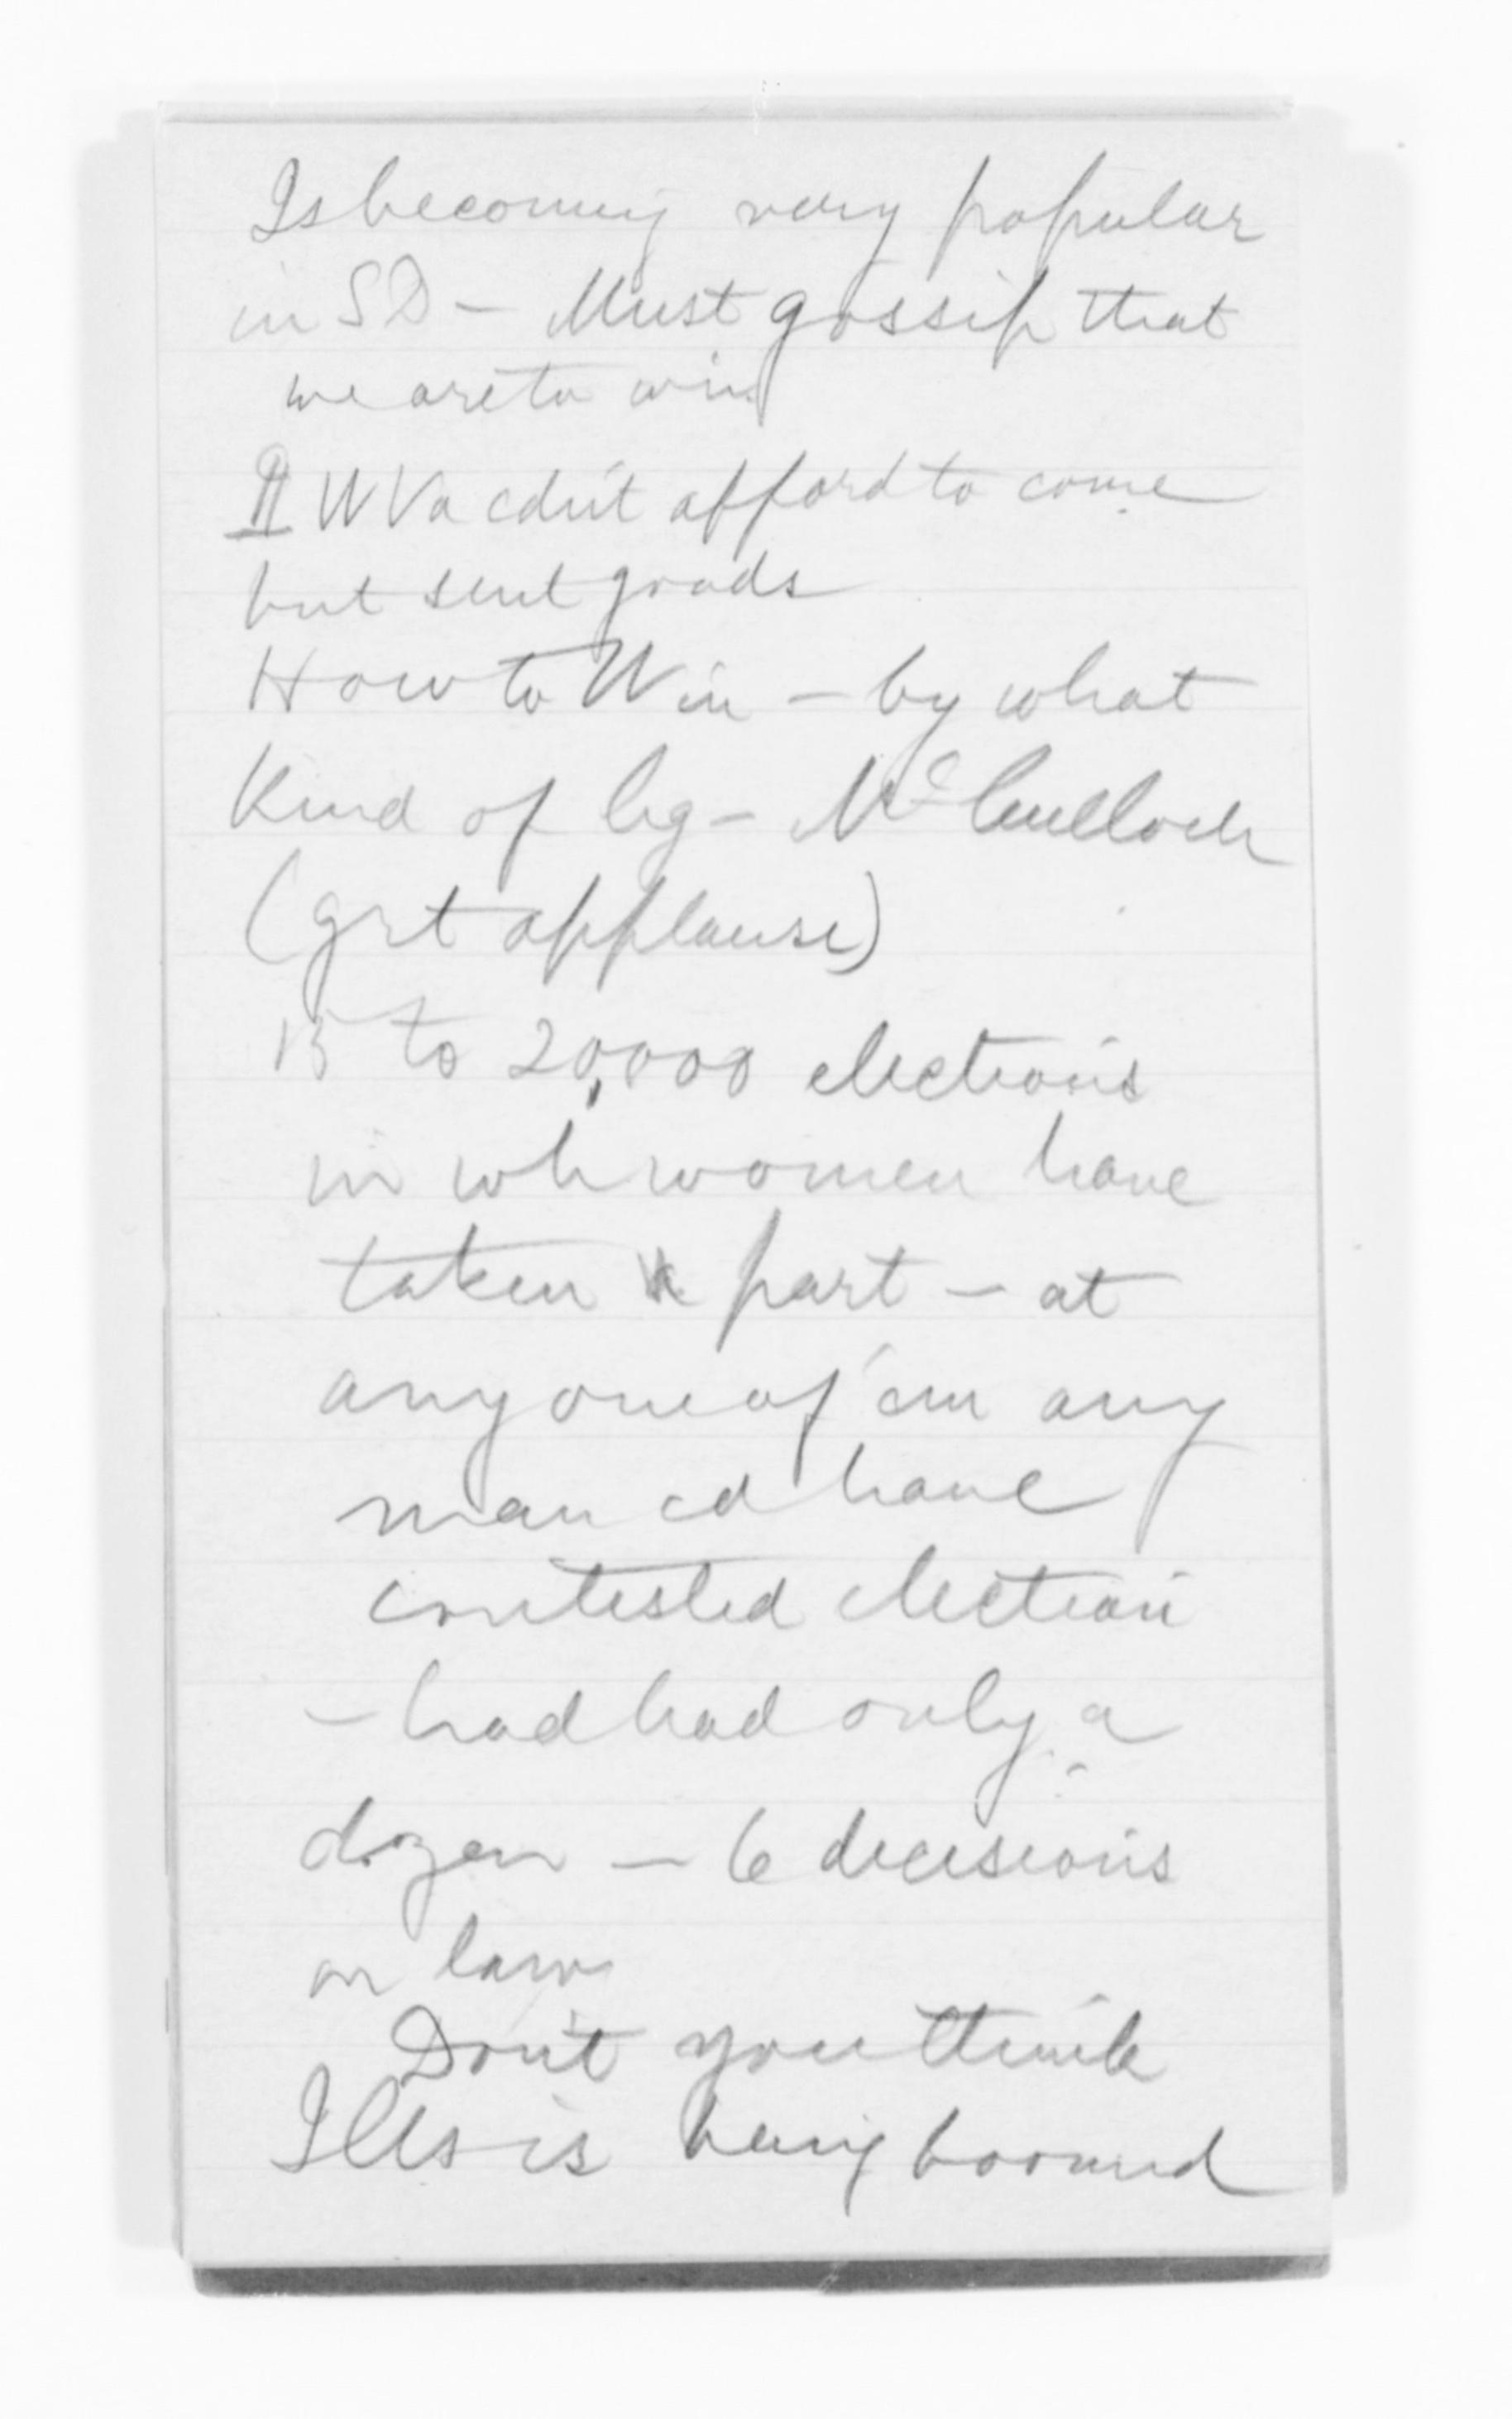 Is becoming very popular
in SD - Must gossip that
we are to win
II W Va cdn't afford to come
but sent goods
How to Win - by what
Kind of leg - McCulloch
(grt applause)
15 to 20,000 elections
in wh women have
taken part - at
any one of 'em any
man cd have
contested election
- had had only a
dozen - 6 decisions
on law
Don't you think
Ills is being boomed